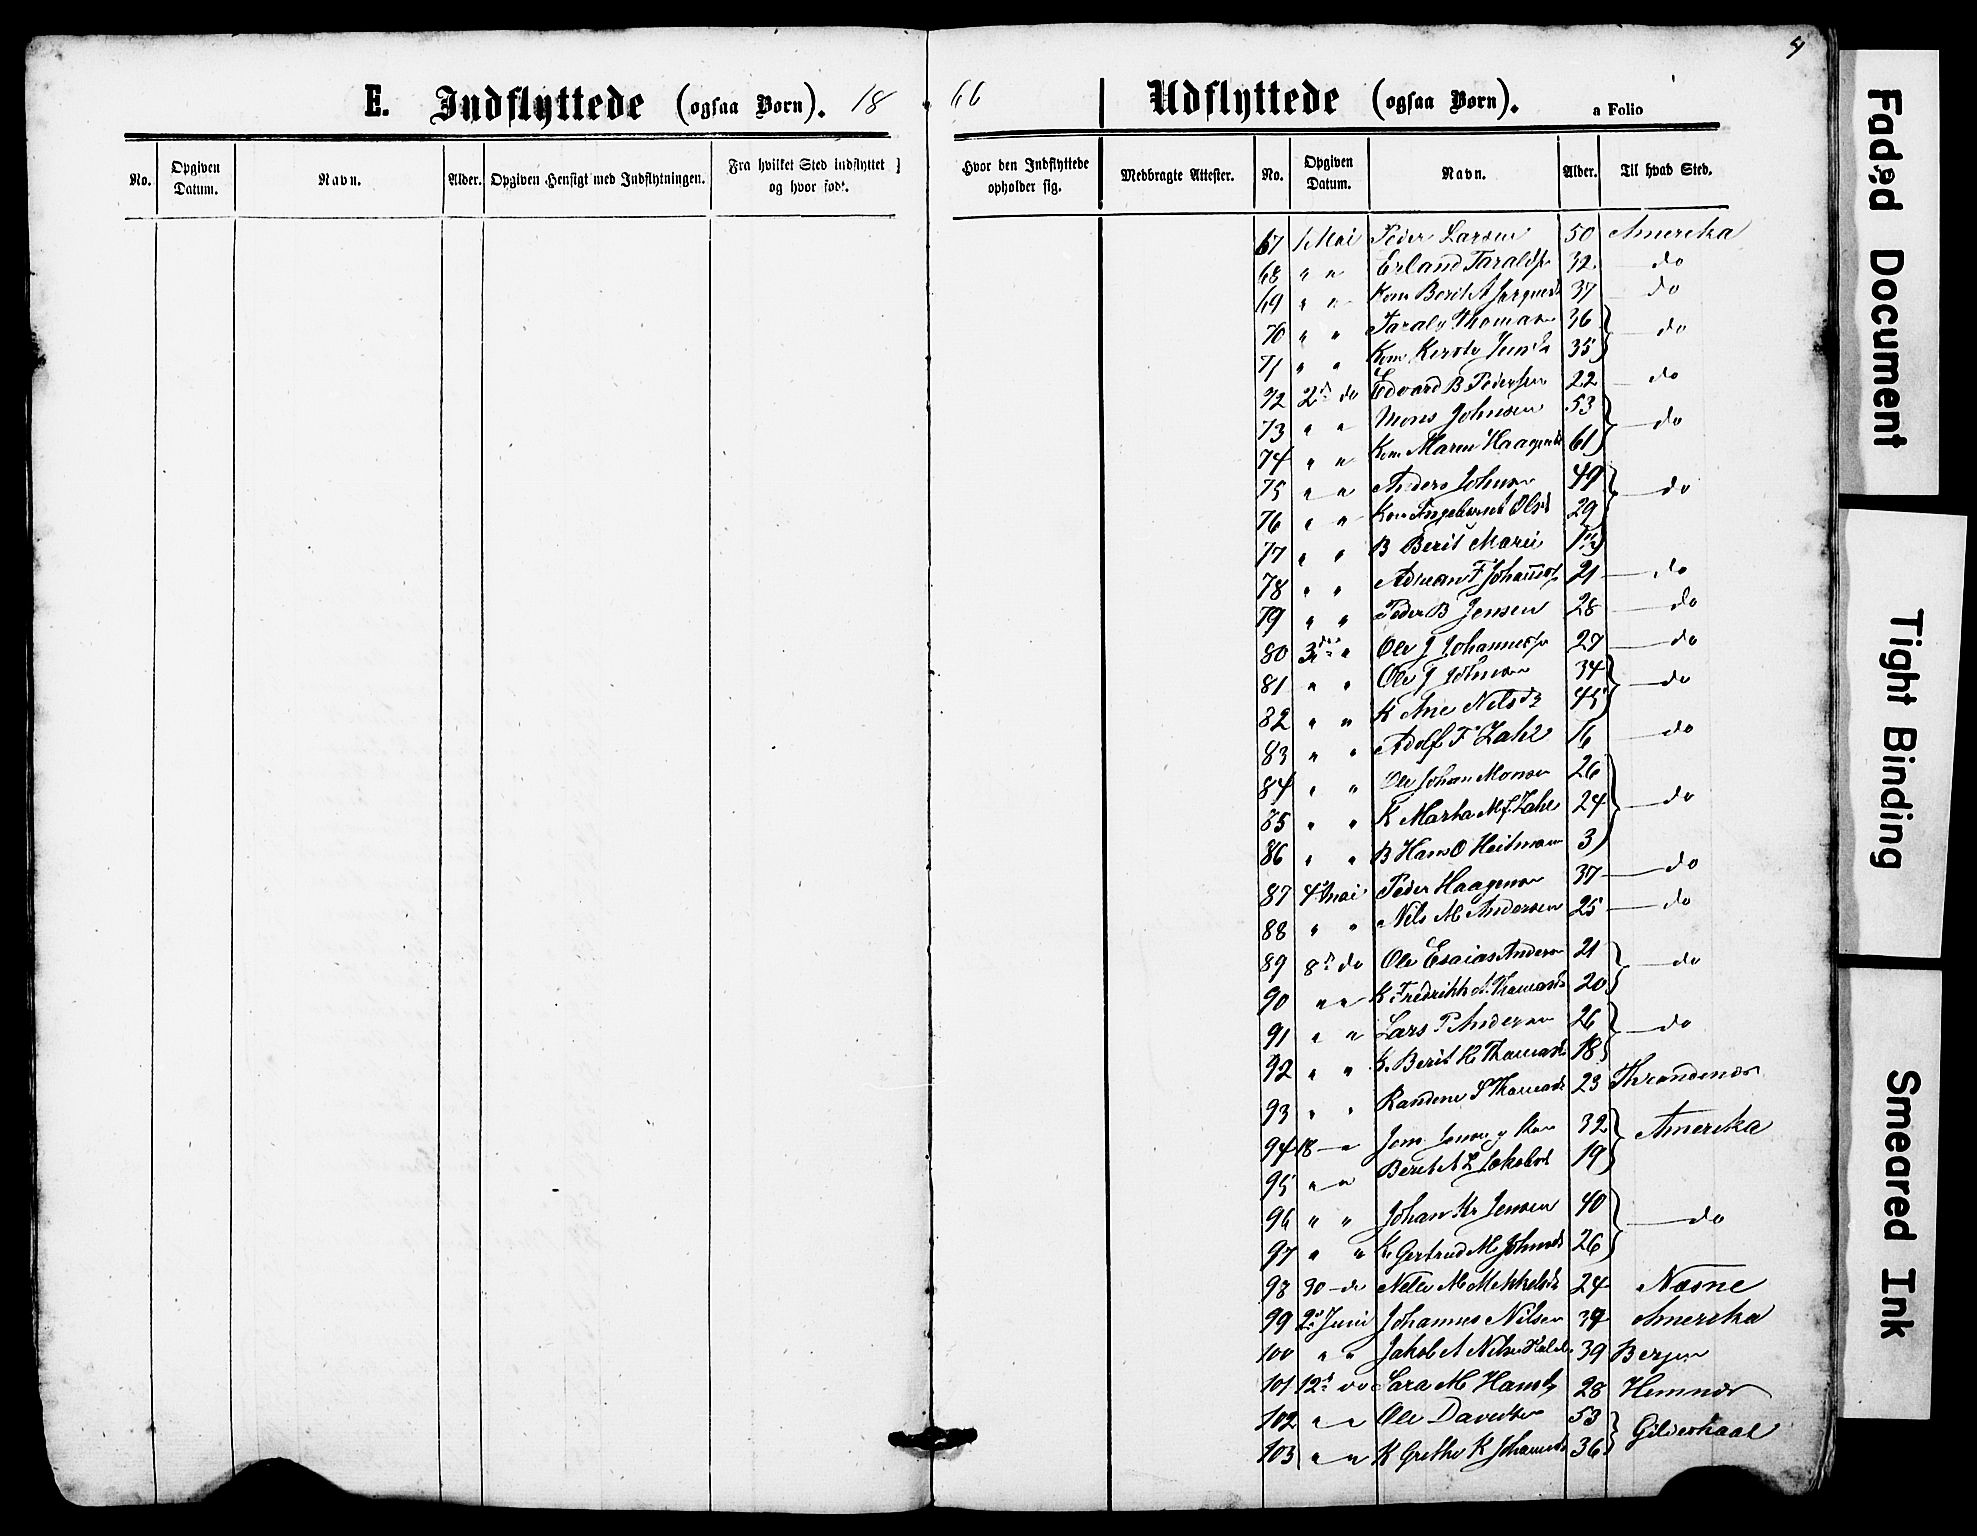 4
E. Indflyttede (ogsaa Børn). 1866 Udflyttede (ogsaa Børn). a Folio
No. Opgiven Datum. Navn. Alder. Opgiven Hensigt med Indflytningen. Fra hvilket Sted indflyttet og hvor født. Hvor den Indflyttede opholder sig. Medbragte Attester. No. Opgiven Datum. Navn. Alder. Til hvad Sted.
67 1 Mai Peder Larsen 50 Amerika
68 " " Erland Taralds 32 do
69 " " Kone Berit A 37 do
70 " " Thomas 36 do
71 " " Kone 35
72 2d do Edvard B Pedersen 22 do
73 " " Mons Johnsen 53 do
74 " " Kone Maren Haagensd 61
75 " " Anders Johnsen 49 do
76 " " Kone Ingeborg Olsd 29
77 " " B Berit Marie
78 " " F Johans 21 do
79 " " Peder B Jensen 28 do
80 3die " Ole J Johannes 27 do
81 " " Ole J Johnsen 34 do
82 " " K Ane Nilsd 45
83 " " Adolf F Zahl 16 do
84 " " Ole Johan Monsen 26 do
85 " " K Marta M J Zahl 24
86 " " B Hans O Heitmann 3
87 4d Mai Peder Haagensen 37 do
88 " " Nils M Andersen 25 do
89 8d do Ole Esaias Andersen 21 do
90 " " K Fredrikke A. Thomasd 20
91 " " Lars P Andersen 26 do
92 " " K. Berit K. Thomasd 18
93 " " S Thomasd 23 Throndenæs
94 18 — " Jensen 32 Amerika
95 " " Berit A L Jakobsd 19
96 " " Johan Kr Jensen 40 do
97 " " K. Gertrud M. Johnsd 26
98 30 — do M Mikkelsd 24 Næsne
99 2d Juni Johannes Nilsen 39 Amerika
100 " " Jakob A Nilsen 39 Bergen
101 12d do Sara M Hansd 28 Hemnæs
102 " " Ole Davidsen 53 Gildeskaal
103 " " K Grethe K Johannesd 36
Faded Document
Tight Binding
Smeared Ink